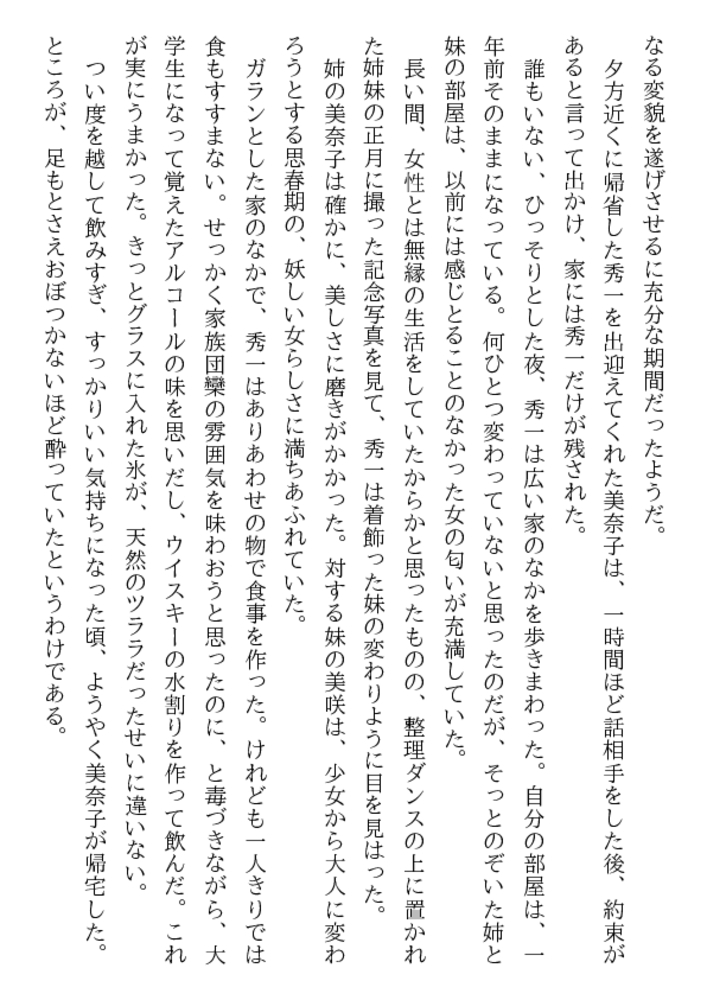 なる変貌を遂げさせるに充分な期間だったようだ。
　夕方近くに帰省した秀一を出迎えてくれた美奈子は、一時間ほど話相手をした後、約束が
あると言って出かけ、家には秀一だけが残された。
　誰もいない、ひっそりとした夜、秀一は広い家のなかを歩きまわった。自分の部屋は、一
年前そのままになっている。何ひとつ変わっていないと思ったのだが、そっとのぞいた姉と
妹の部屋は、以前には感じとることのなかった女の匂いが充満していた。
　長い間、女性とは無縁の生活をしていたからかと思ったものの、整理ダンスの上に置かれ
た姉妹の正月に撮った記念写真を見て、秀一は着飾った妹の変わりように目を見はった。
　姉の美奈子は確かに、美しさに磨きがかかった。対する妹の美咲は、少女から大人に変わ
ろうとする思春期の、妖しい女らしさに満ちあふれていた。
　ガランとした家のなかで、秀一はありあわせの物で食事を作った。けれども一人きりでは
食もすすまない。せっかく家族団欒の雰囲気を味わおうと思ったのに、と毒づきながら、大
学生になって覚えたアルコールの味を思いだし、ウイスキーの水割りを作って飲んだ。これ
が実にうまかった。きっとグラスに入れた氷が、天然のツララだったせいに違いない。
　つい度を越して飲みすぎ、すっかりいい気持ちになった頃、ようやく美奈子が帰宅した。
ところが、足もとさえおぼつかないほど酔っていたというわけである。